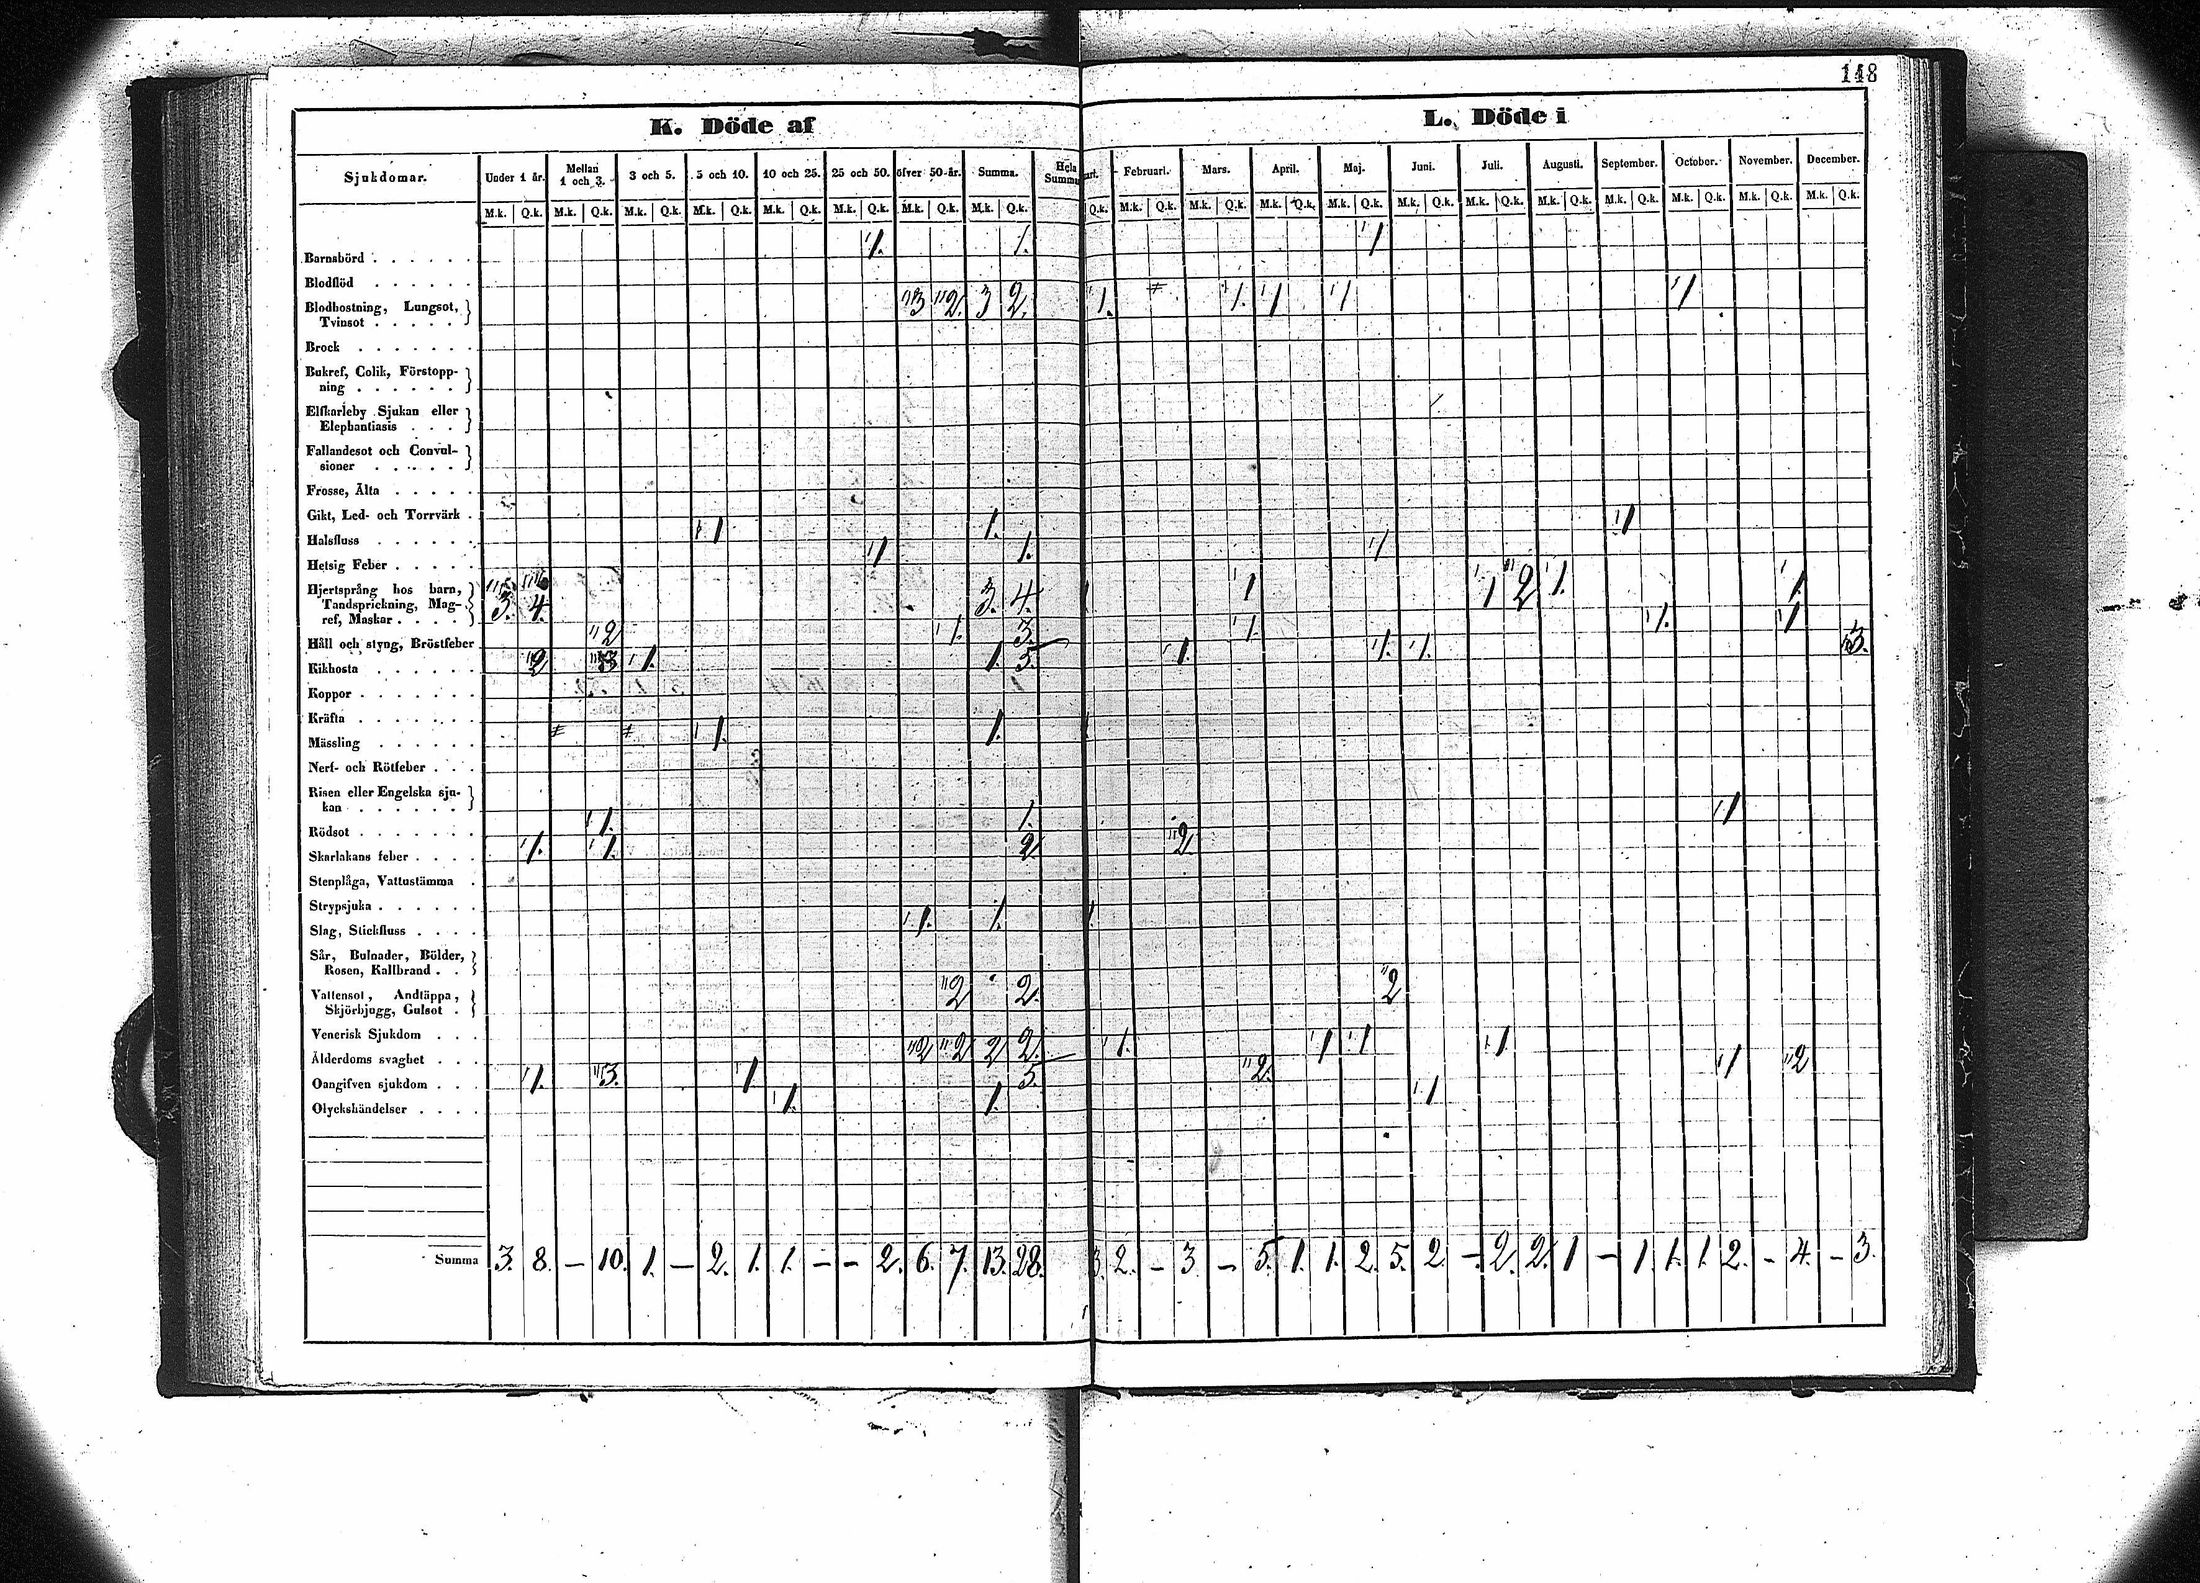 148
K. Döde af
L. Döde i
Sjukdomar. Under 1 år. Mellan 1 och 3. 3 och 5. 5 och 10. 10 och 25. 25 och 50. öfver 50 år. Summa. Hela Summa
ari. Februari. Mars. April. Maj. Juni. Juli. Augusti. September. October. November. December.
M.k. Q.k. M.k. Q.k. M.k. Q.k. M.k. Q.k. M.k. Q.k. M.k. Q.k. M.k. Q.k. M.k. Q.k.
Q.k. M.k. Q.k. M.k. Q.k. M.k. Q.k. M.k. Q.k. M.k. Q.k. M.k. Q.k. M.k. Q.k. M.k. Q.k. M.k. Q.k. M.k. Q.k. M.k. Q.k.
Barnsbörd 1. 1. 1
Blodflöd
Blodhostning, Lungsot,
Tvinsot 3 2. 3 2. 1. 1. 1 1 1
Brock
Bukref, Colik, Förstopp-
ning
Elfkarleby Sjukan eller
Elephantiasis
Fallandesot och Convul-
sioner
Frosse, Älta
Gikt, Led- och Torrvärk
Halsfluss 1 1. 1
Hetsig Feber 1 1. 1
Hjertsprång hos barn,
Tandsprickning, Mag-
ref, Maskar 3. 4. 3. 4. 1 1 2 1. 1
Håll och styng, Bröstfeber 2 1. 3. 1. 1. 1
Kikhosta 2 3 1. 1. 5 1. 1. 1. 3.
Koppor
Kräfta
Mässling 1. 1.
Nerf- och Rötfeber
Risen eller Engelska sju-
kan
Rödsot 1. 1. 1
Skarlakans feber 1. 1. 2 2
Stenplåga, Vattustämma
Strypsjuka
Slag, Stickfluss 1. 1.
Sår, Bulnader, Bölder,
Rosen, Kallbrand
Vattensot, Andtäppa,
Skjörbjugg, Gulsot 2 2. 2
Venerisk Sjukdom
Ålderdoms svaghet 2 2 2 2. 1. 1 1 1
Oangifven sjukdom 1. 3. 1 5. 2. 1 2
Olyckshändelser 1. 1. 1
Summa 3. 8. – 10. 1. – 2. 1. 1. – – 2. 6. 7. 13. 28.
3. 2. – 3 – 5. 1. 1. 2. 5. 2 – 2. 2. 1 – 1. 1. 1. 2. – 4. – 3.